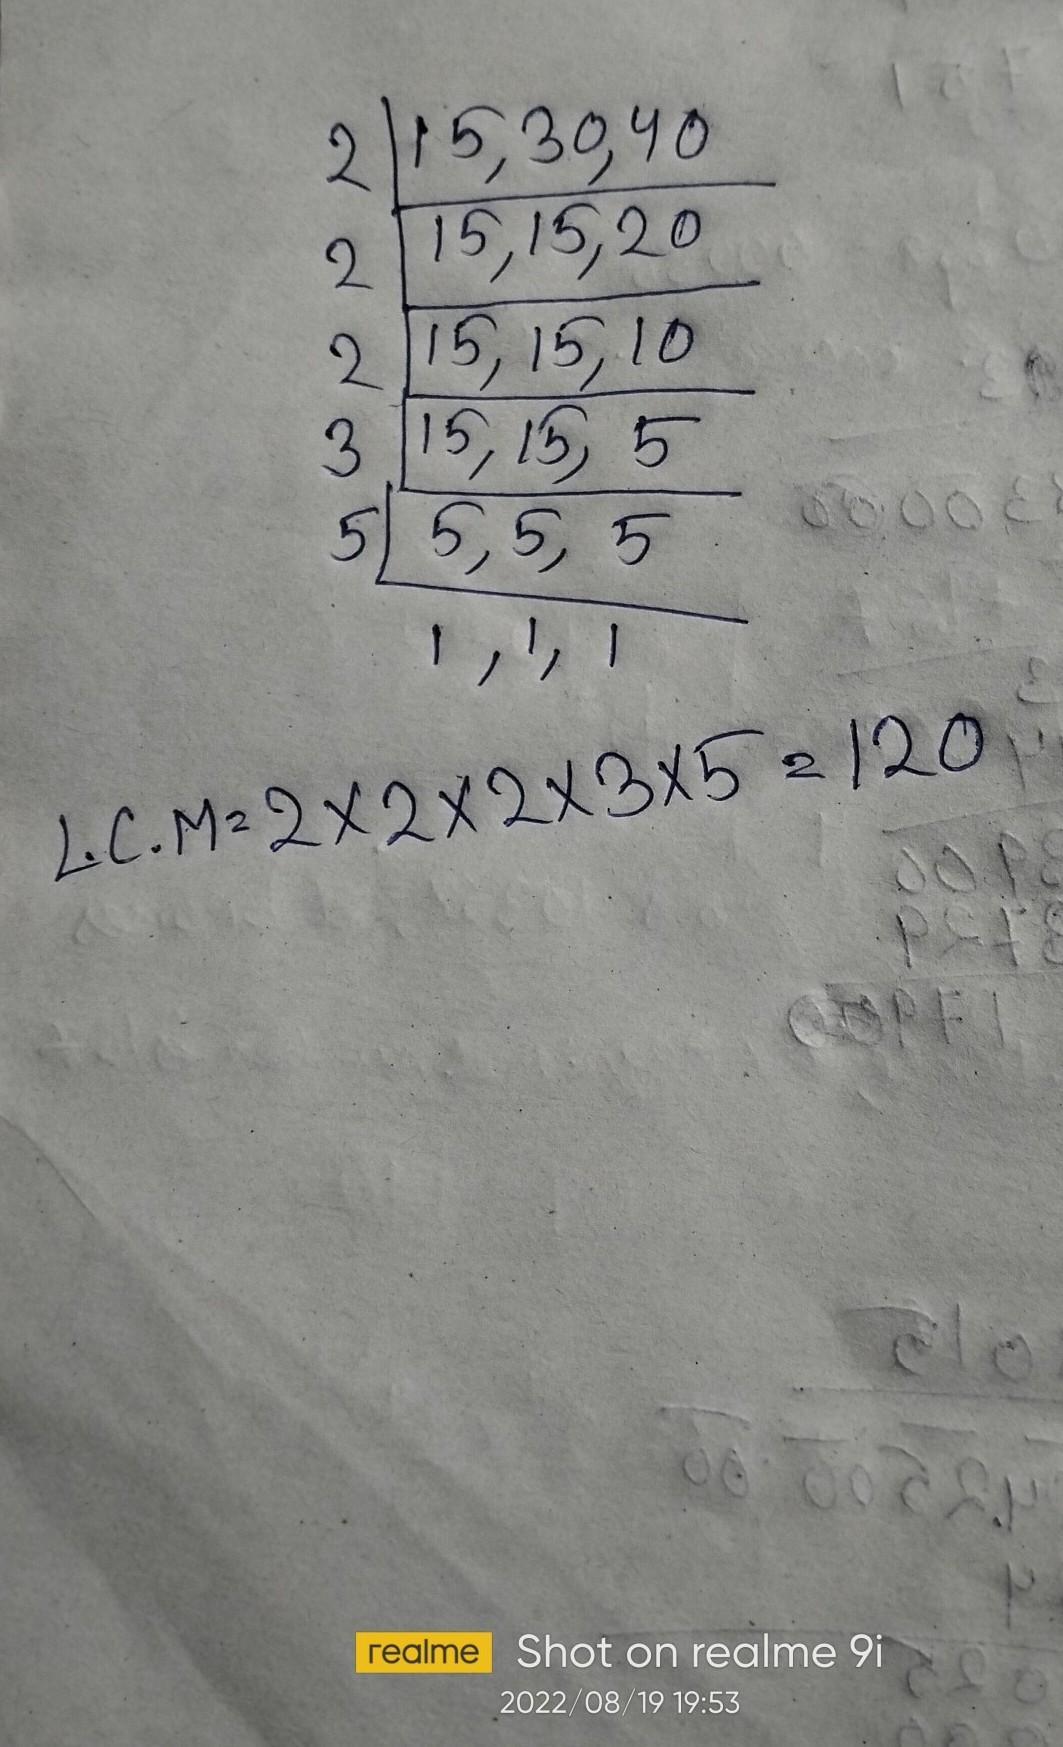 2 | 15, 30, 40
2 | 15, 15, 20
2 | 15, 15, 10
3 | 15, 15, 5
5 | 5, 5, 5
1, 1, 1
L.C.M = 2 × 2 × 2 × 3 × 5 = 120
realme Shot on realme 9i
2022/08/19 19:53